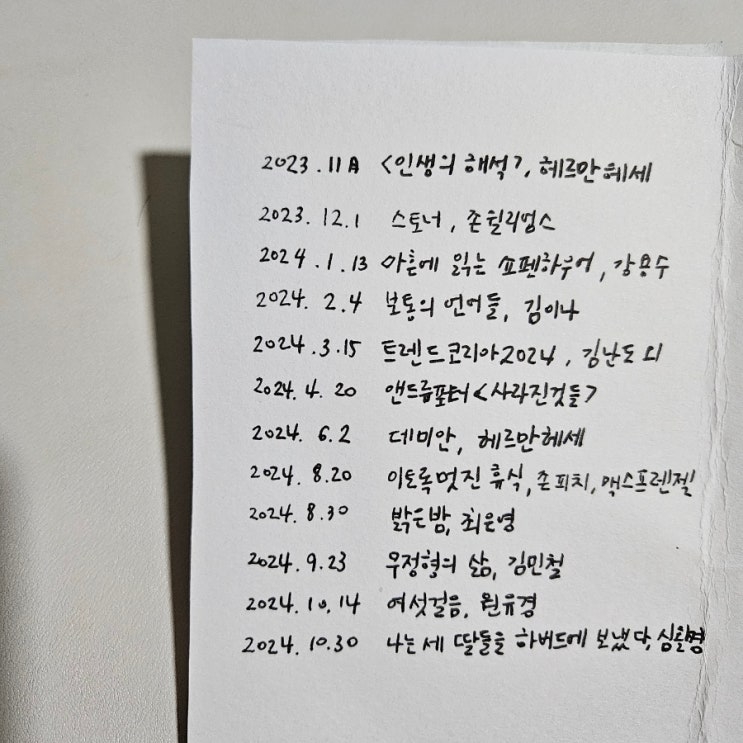 2023.11月 <인생의 해석>, 헤르만헤세
2023.12.1 스토너, 존윌리엄스
2024.1.13 마흔에 읽는 쇼펜하우어, 강용수
2024.2.4 보통의 언어들, 김이나
2024.3.15 트렌드코리아2024, 김난도 외
2024.4.20 앤드류포터<사라진것들>
2024.6.2 데미안, 헤르만헤세
2024.8.20 이토록멋진 휴식, 존피치, 맥스프렌젤
2024.8.30 밝은밤, 최은영
2024.9.23 무정형의 삶, 김민철
2024.10.14 여섯걸음, 원유경
2024.10.30 나는 세 딸들을 하버드에 보냈다, 심활경